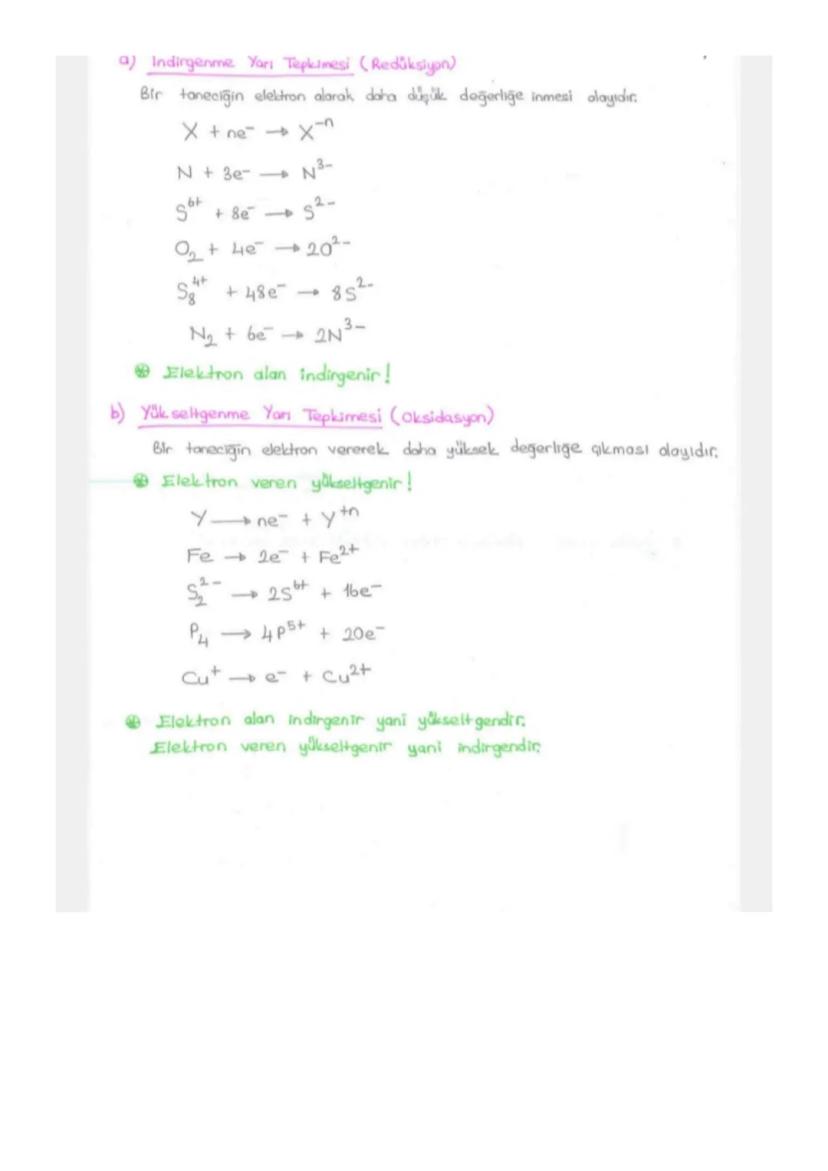 a) İndirgenme Yarı Tepkimesi (Redüksiyon)
Bir taneciğin elektron alarak daha düşük değerliğe inmesi olayıdır.
X + ne⁻ → X⁻ⁿ
N + 3e⁻ → N³⁻
S⁶⁺ + 8e⁻ → S²⁻
O₂ + 4e⁻ → 2O²⁻
S₈⁴⁺ + 48e⁻ → 8S²⁻
N₂ + 6e⁻ → 2N³⁻
⊛ Elektron alan indirgenir!
b) Yükseltgenme Yarı Tepkimesi (Oksidasyon)
Bir taneciğin elektron vererek daha yüksek değerliğe çıkması olayıdır.
⊛ Elektron veren yükseltgenir!
Y → ne⁻ + Y⁺ⁿ
Fe → 2e⁻ + Fe²⁺
S₂²⁻ → 2S⁶⁺ + 16e⁻
P₄ → 4P⁵⁺ + 20e⁻
Cu⁺ → e⁻ + Cu²⁺
⊛ Elektron alan indirgenir yani yükseltgendir.
Elektron veren yükseltgenir yani indirgendir.